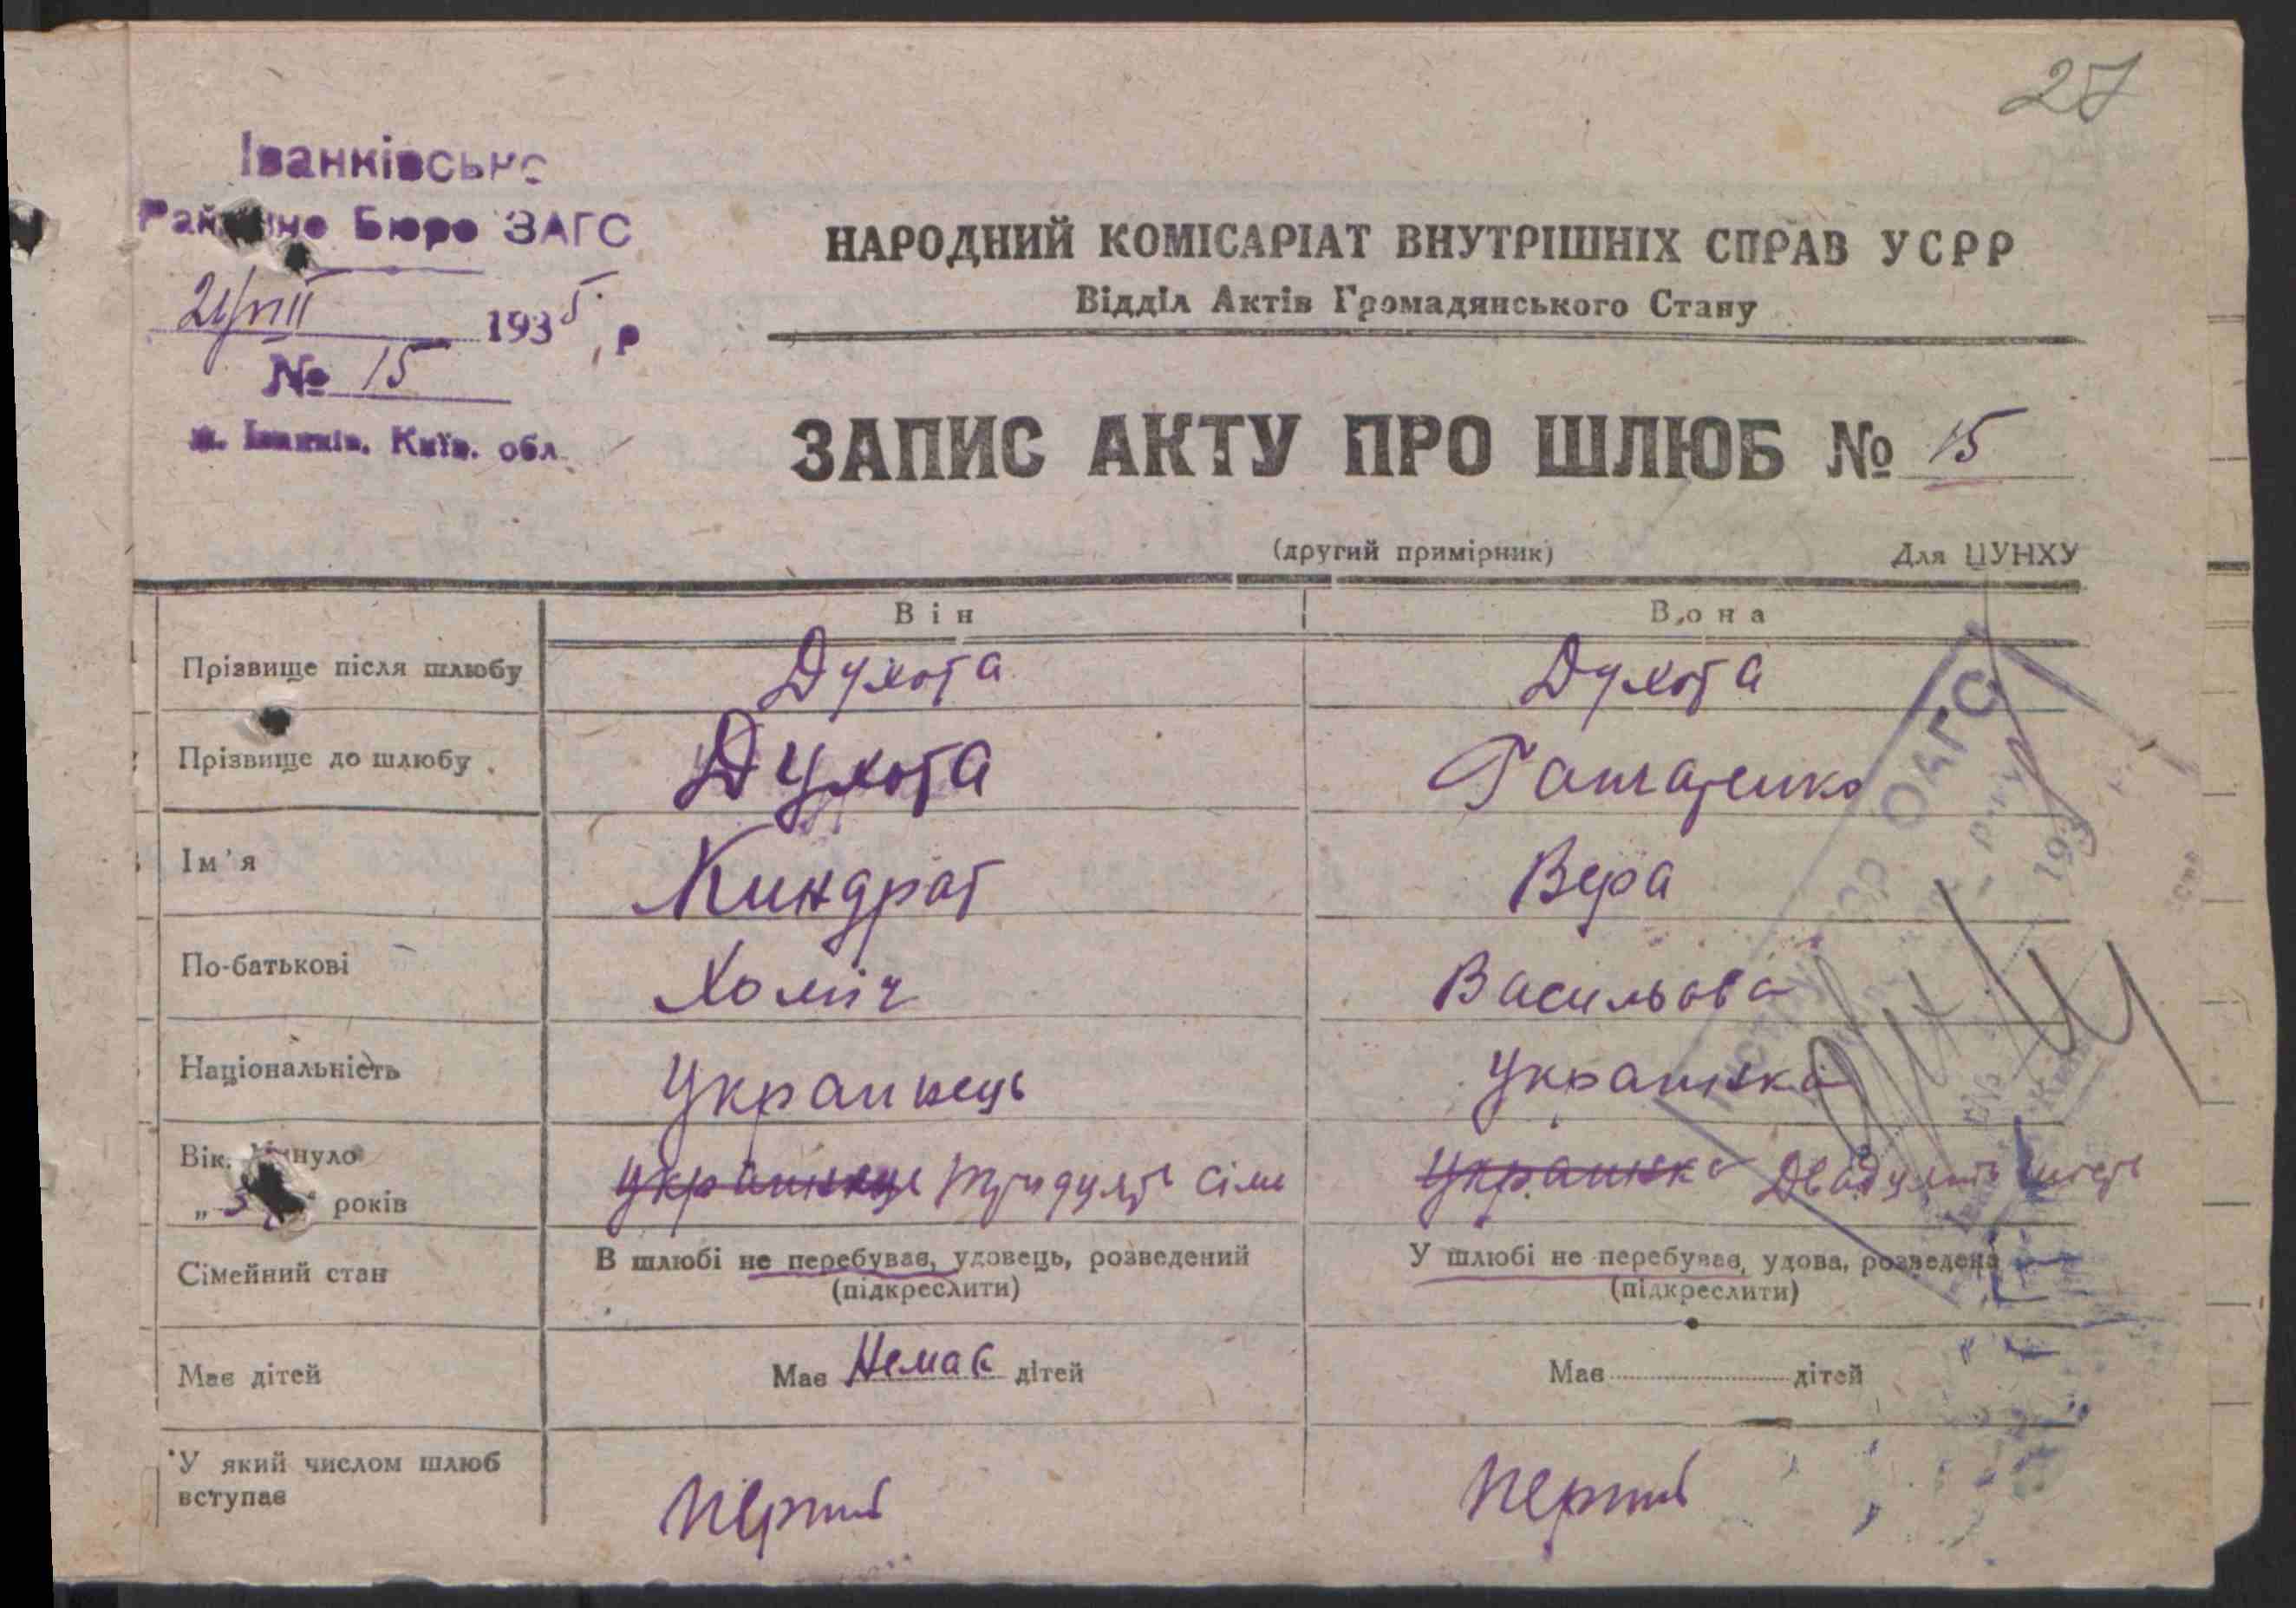 27
Іванківське
Районне Бюро ЗАГС
21/VIII 1935 р
№ 15
м. Іванків, Київ. обл.
НАРОДНИЙ КОМІСАРІАТ ВНУТРІШНІХ СПРАВ УСРР
Відділ Актів Громадянського Стану
ЗАПИС АКТУ ПРО ШЛЮБ № 15
(другий примірник) Для ЦУНХУ
Він Вона
Прізвище після шлюбу Духота Духота
Прізвище до шлюбу Духота
Ім'я Киндрат Вера
По-батькові Хоміч Васильова
Національність Украинець Украинка
Вік. Минуло Украинець тридцять сім Украинка Двадцять шість
років
Сімейний стан В шлюбі не перебував, удовець, розведений У шлюбі не перебувас, удова, розведена
(підкреслити) (підкреслити)
Має дітей Має Немає дітей Має дітей
У який числом шлюб Перший Перший
вступає
ОАГС
193